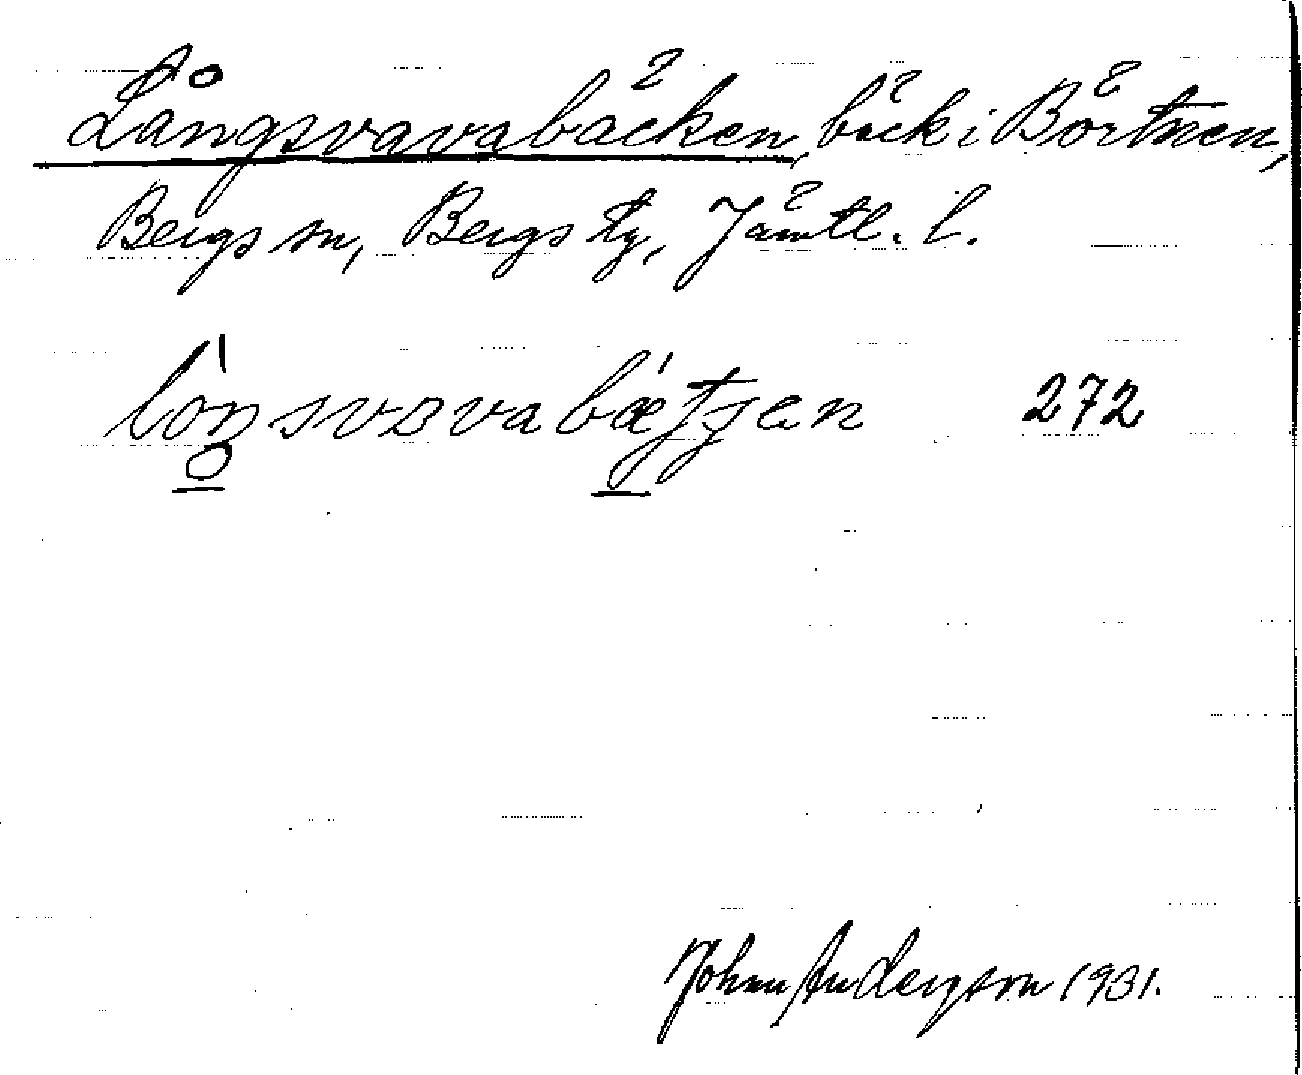 Långsvavabäcken, bäck i Börtnen,
Bergs sn, Bergs tg, Jämtl. l.
272
Johan Andersson 1931.